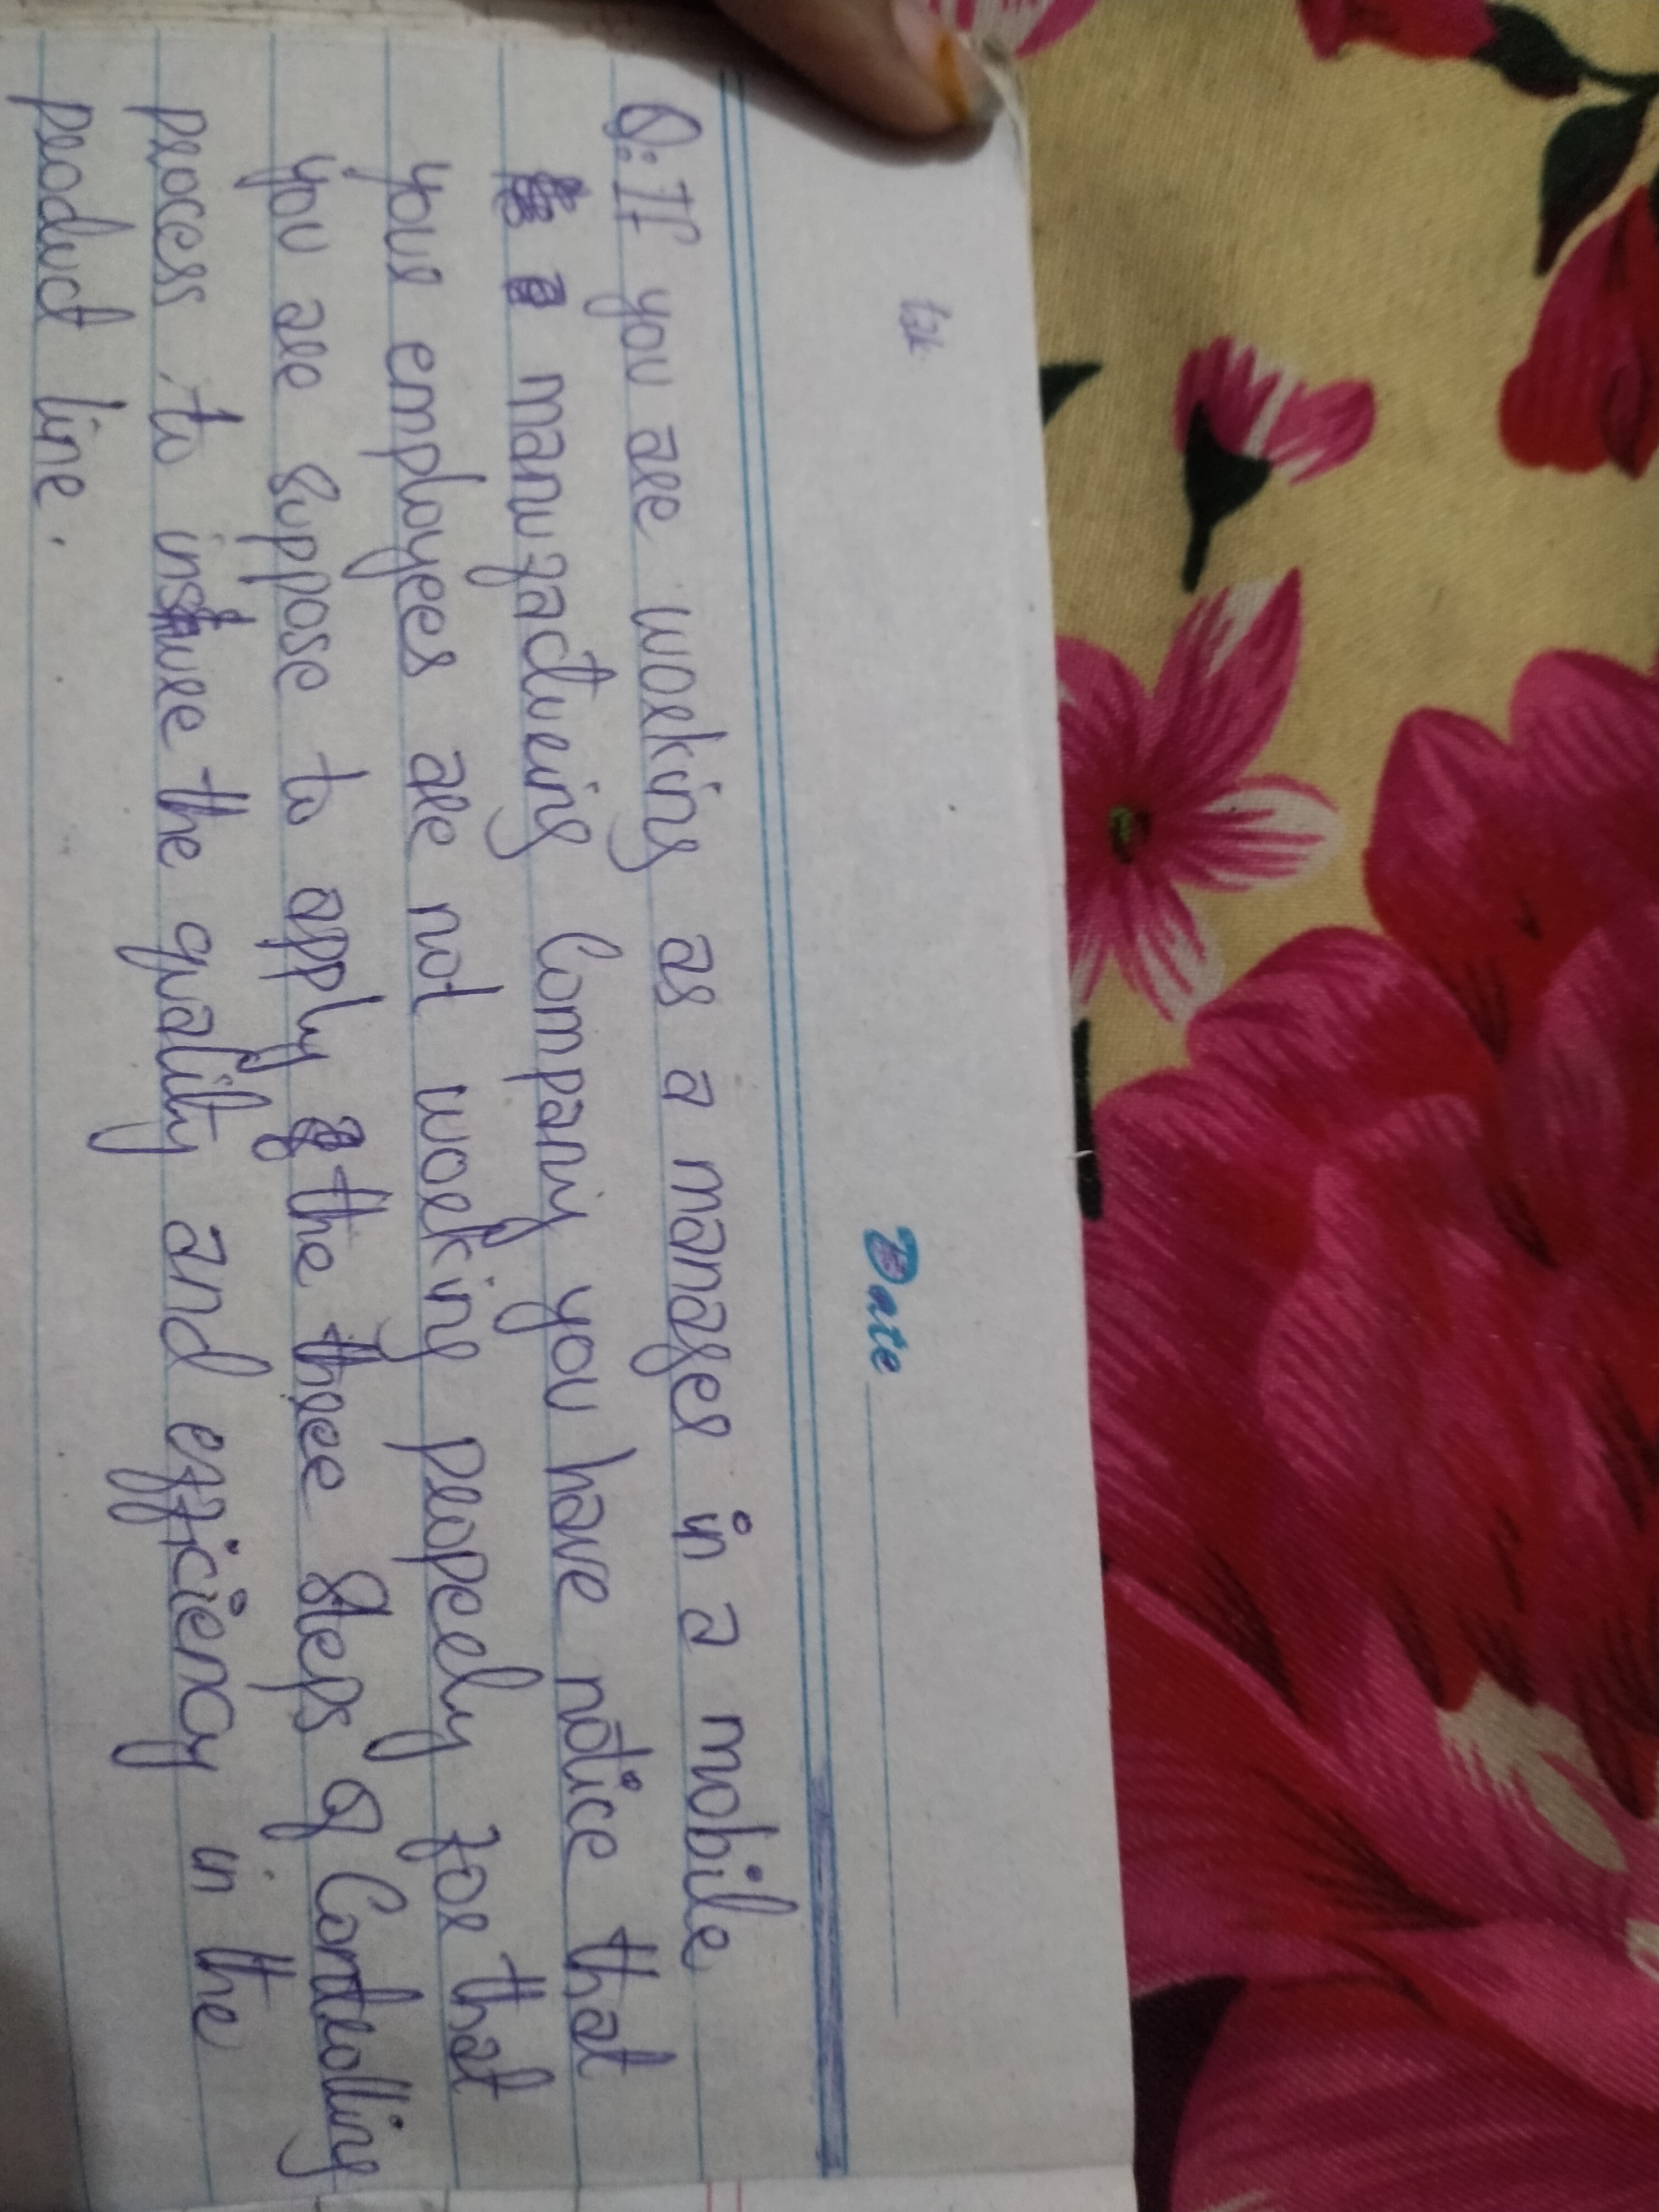 Date
Q: If you are working as a manager in a mobile
manufacturing Company you have notice that
your employees are not working properly for that
you are suppose to apply the three steps of Controlling
process to insure the quality and efficiency in the
product line.